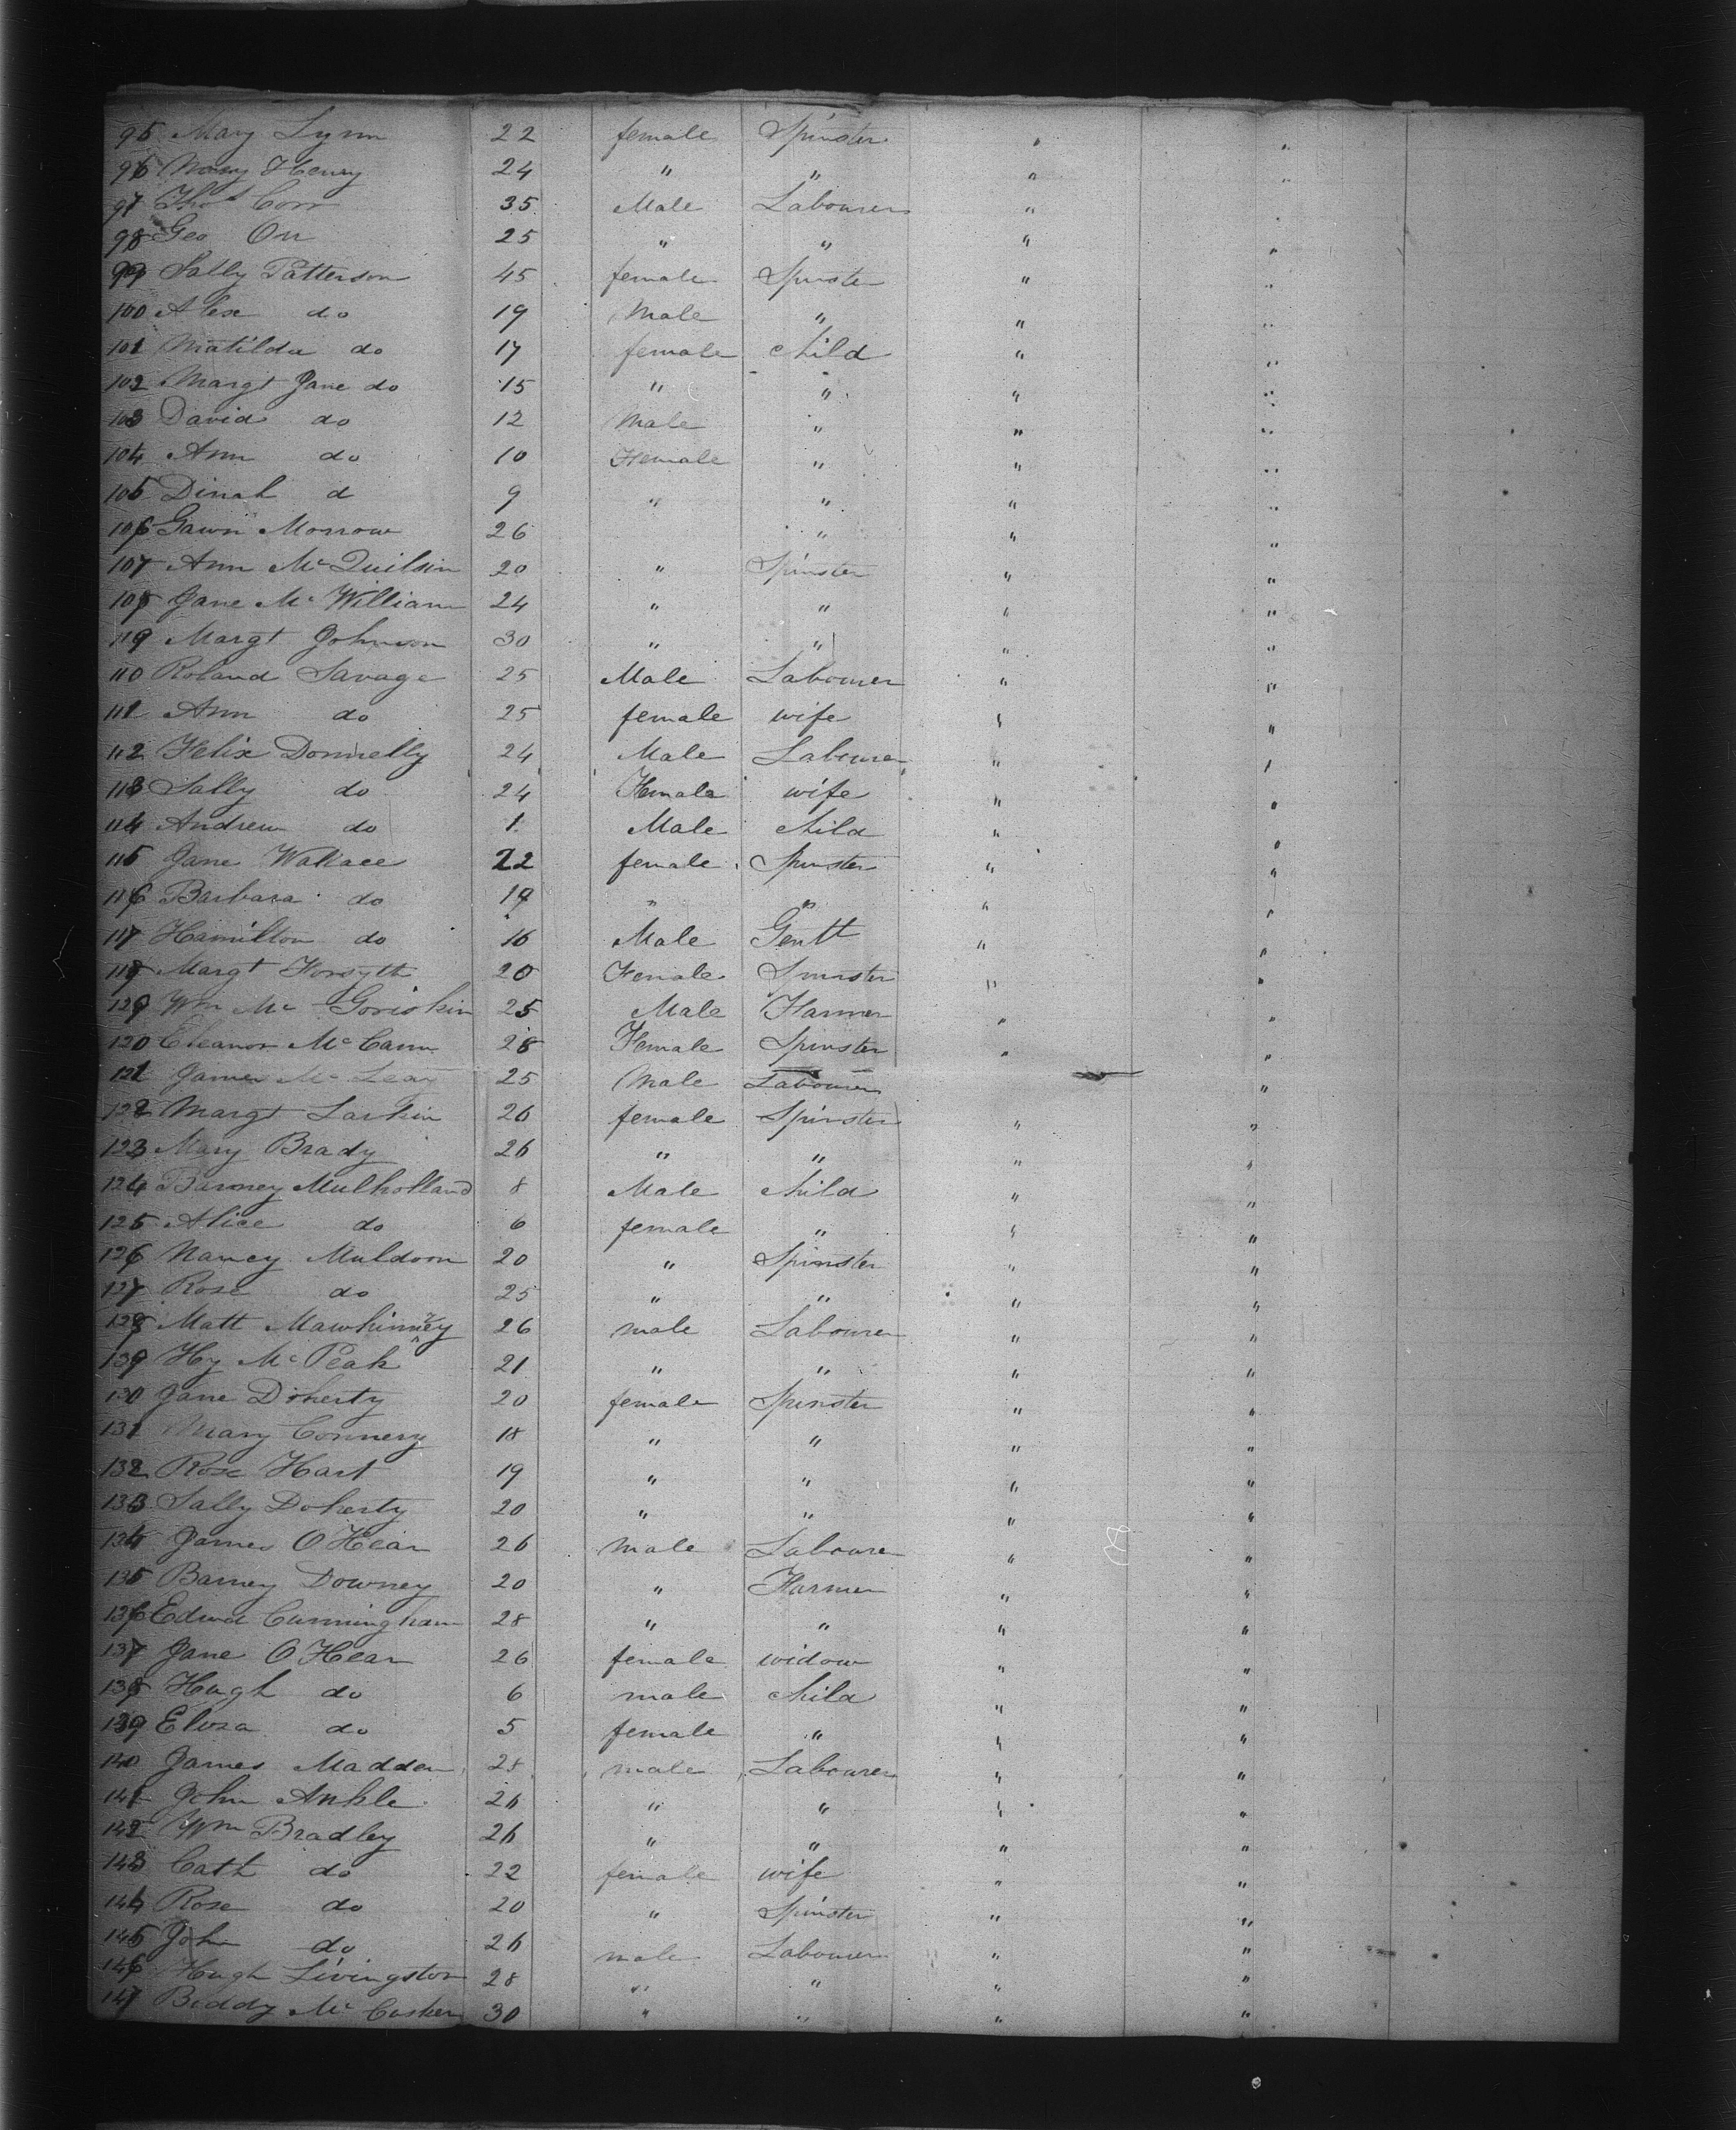 95 Mary Lynn 22 female Spinster " "
96 Mary Henry 24 " " " "
97 Thos Corr 35 Male Labourer "
98 Geo Orr 25 " " " "
99 Sally Patterson 45 female Spinster " "
100 Alex do 19 Male " " "
101 Matilda do 17 female child " "
102 Margt Jane do 15 " " " "
103 David do 12 Male " " "
104 Ann do 10 Female " " "
105 Dinah d 9 " " " "
106 Gawn Morrow 26 " " "
107 Ann Mc Quilkin 20 " Spinster " "
108 Jane Mc William 24 " " " "
119 Margt Johnson 30 " " " "
110 Roland Savage 25 Male Labourer " "
111 Ann do 25 female wife " "
112 Felix Donnelly 24 Male Labourer " "
113 Sally do 24 Female wife " "
114 Andrew do 1 Male child " "
115 Jane Wallace 22 female Spinster " "
116 Barbara do 19 " " " "
117 Hamilton do 16 Male Gentt " "
118 Margt Forsyth 20 Female Spinster " "
129 Wm Mc Goriskin 25 Male Farmer " "
120 Eleanor Mc Cann 28 Female Spinster " "
121 James Mc Leay 25 Male Labourer "
122 Margt Larkin 26 female Spinster " "
123 Mary Brady 26 " " " "
124 Barney Mulholland 8 Male child " "
125 Alice do 6 female " " "
126 Nancy Muldoon 20 " Spinster " "
127 Rose do 25 " " " "
128 Matt Mawhinney 26 male Labourer " "
139 Hy Mc Peak 21 " " " "
130 Jane Doherty 20 female Spinster " "
131 Mary Connery 18 " " " "
132 Rose Hart 19 " " " "
133 Sally Doherty 20 " " " "
134 James O Hear 26 male Labourer " "
135 Barney Downey 20 " Farmer " "
136 Edwd Cunningham 28 " " " "
137 Jane O Hear 26 female widow " "
138 Hugh do 6 male child " "
139 Eliza do 5 female " " "
140 James Madden 28 male Labourer " "
141 John Ankle 26 " " " "
142 Wm Bradley 26 " " " "
143 Cath do 22 female wife " "
144 Rose do 20 " Spinster " "
145 John do 26 male Labourer " "
146 Hugh Livingston 28 " " " "
147 Biddy Mc Cosker 30 " " " "